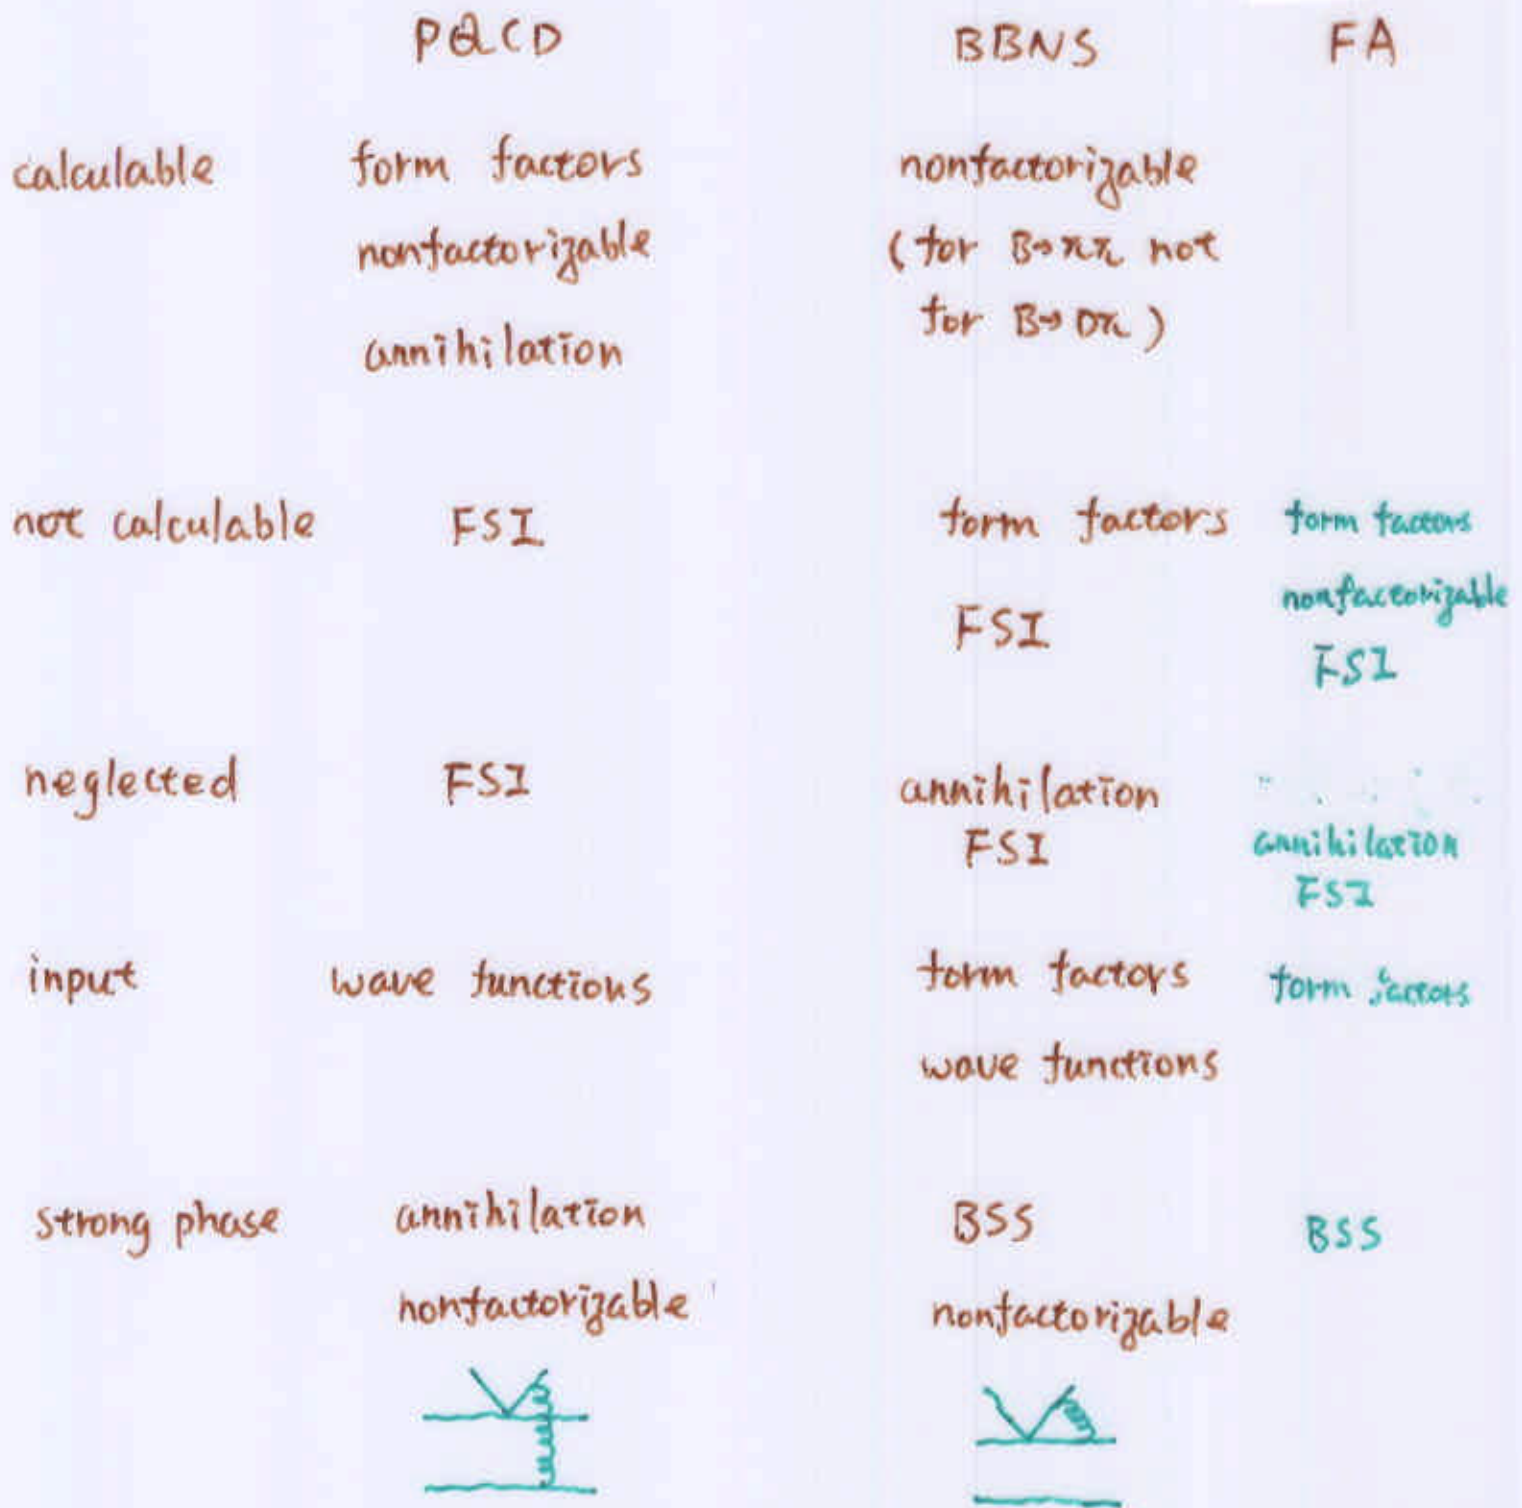 PQCD BBNS FA
calculable form factors nonfactorizable
nonfactorizable (for B→ππ not
for B→Dπ)
annihilation
not calculable FSI form factors form factors
nonfactorizable
FSI
FSI
neglected FSI annihilation
FSI annihilation
FSI
input wave functions form factors form factors
wave functions
strong phase annihilation BSS BSS
nonfactorizable nonfactorizable